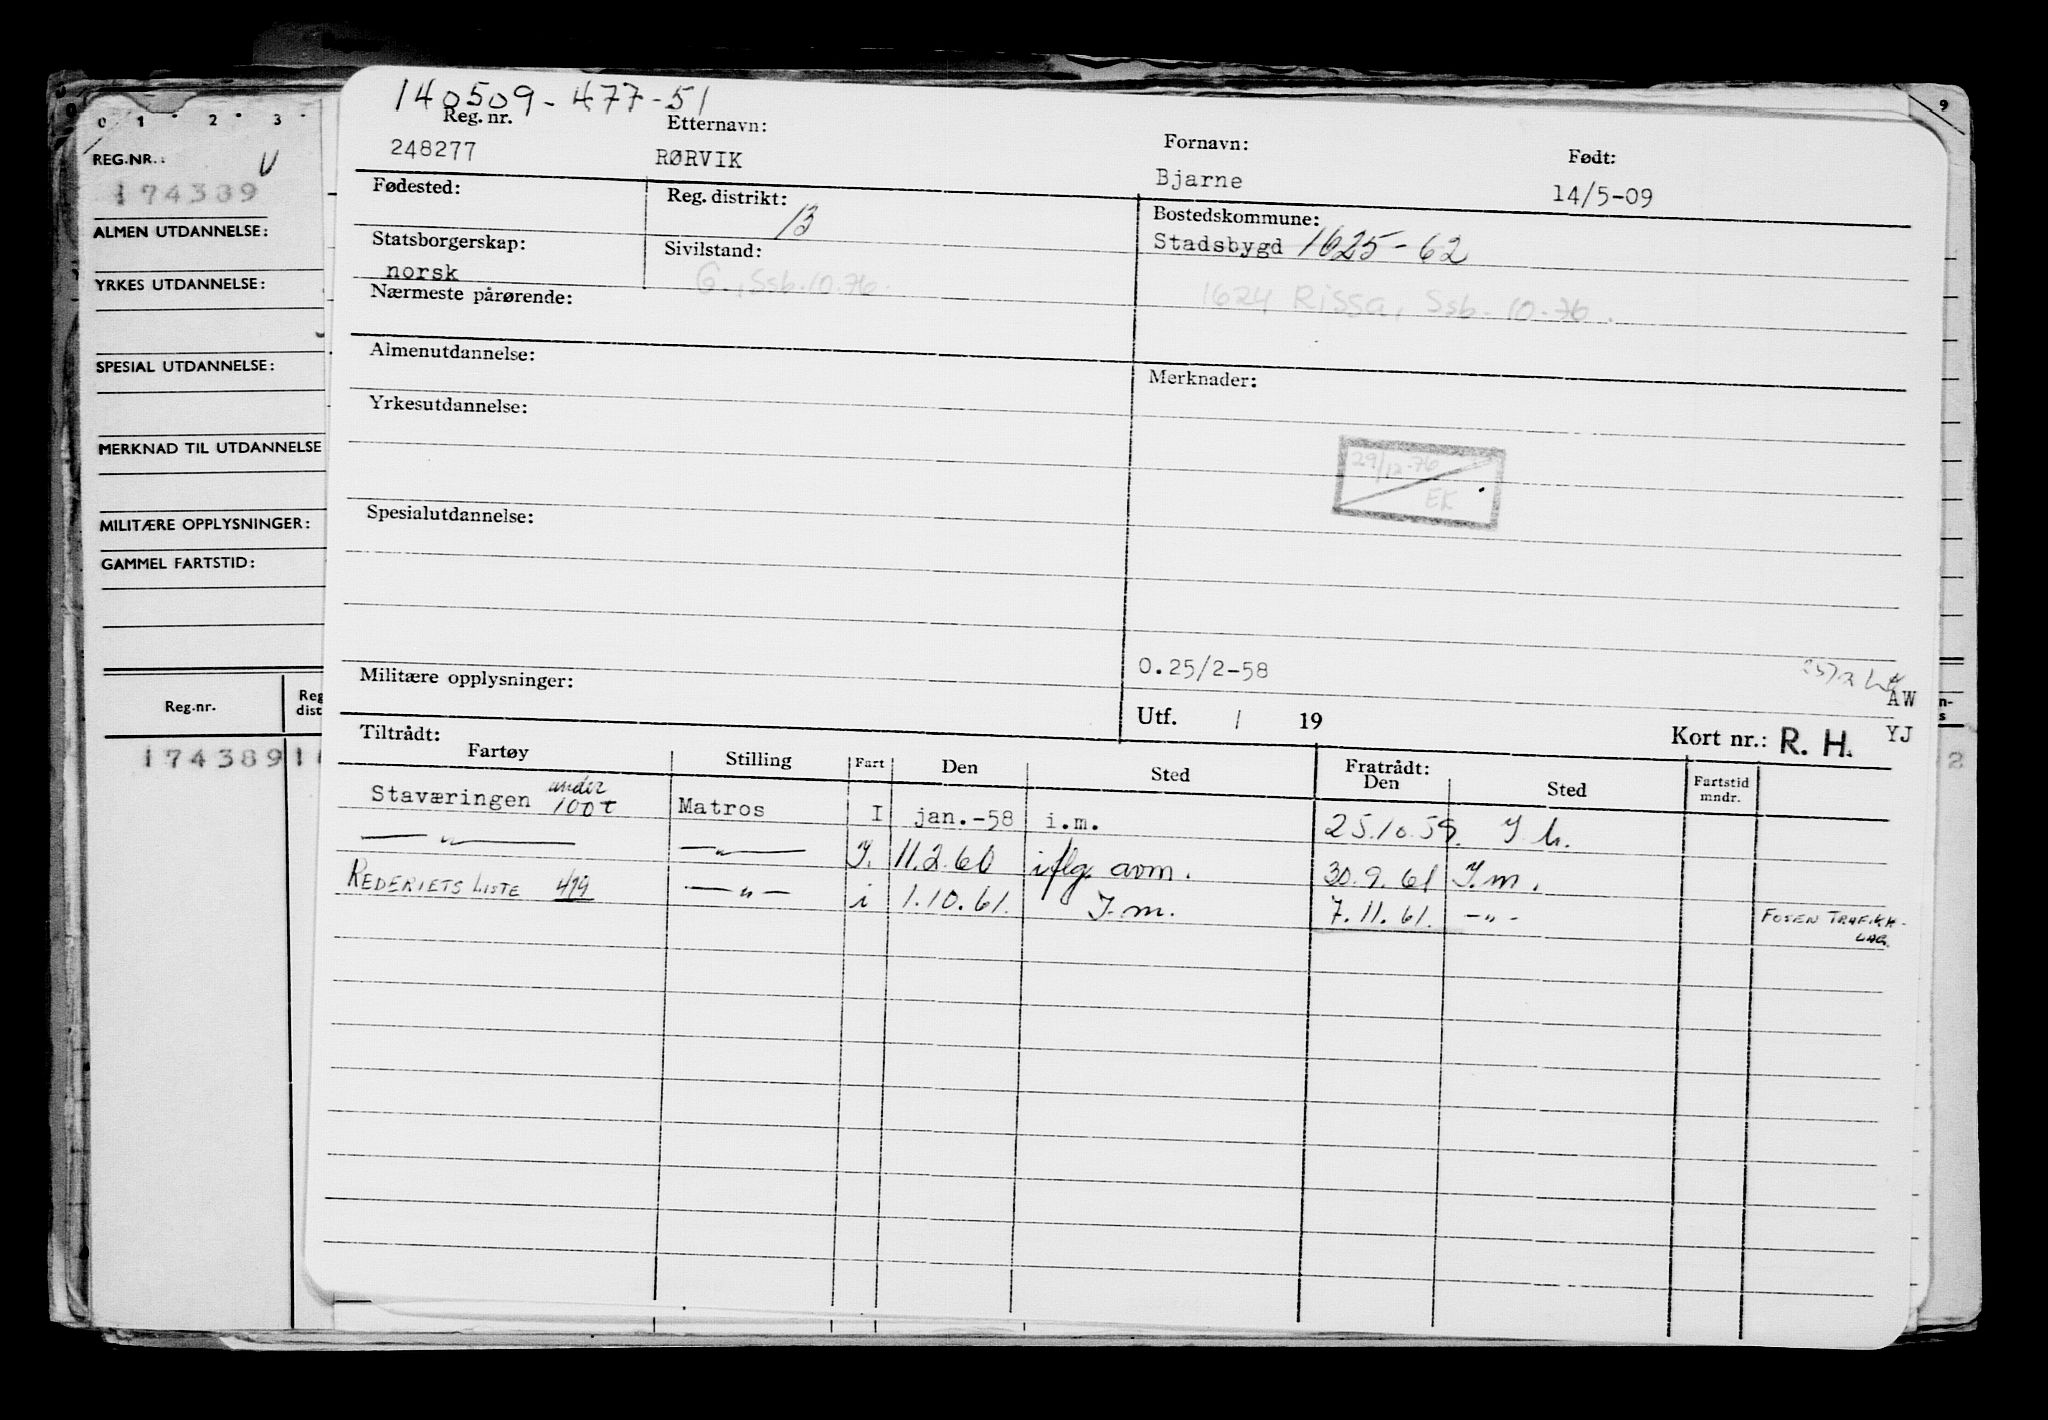 140509-477-51
Reg. nr. Etternavn: Fornavn: Født:
248277 RØRVIK Bjarne 14/5-09
Fødested: Reg. distrikt: 13 Bostedskommune:
Stadsbygd 1625-62
Statsborgerskap: Sivilstand:
norsk G., Ssb. 10.76.
Nærmeste pårørende: 1624 Rissa, Ssb. 10-76.
Almenutdannelse: Merknader:
Yrkesutdannelse:
29/12-76
EK
Spesialutdannelse:
O.25/2-58
AW
Militære opplysninger:
Utf. / 19 Kort nr.: R. H. YJ
Tiltrådt: Fratrådt:
Fartøy Stilling Fart Den Sted Den Sted Fartstid mndr.
Staværingen under 100t Matros I jan.-58 i.m. 25.10.59.
—"— —"— I. 11.2.60 iflg. avm. 30.9.61 I.m.
REDERIETS LISTE 419 —"— i 1.10.61. I.m. 7.11.61. -"- FOSEN TRAFIKK-
LAG.
0 1 2 3
REG.NR.: V
174389
ALMEN UTDANNELSE:
YRKES UTDANNELSE:
SPESIAL UTDANNELSE:
MERKNAD TIL UTDANNELSE
MILITÆRE OPPLYSNINGER:
GAMMEL FARTSTID:
Reg.nr. Reg
dist
174389 1
9
n-
s
2